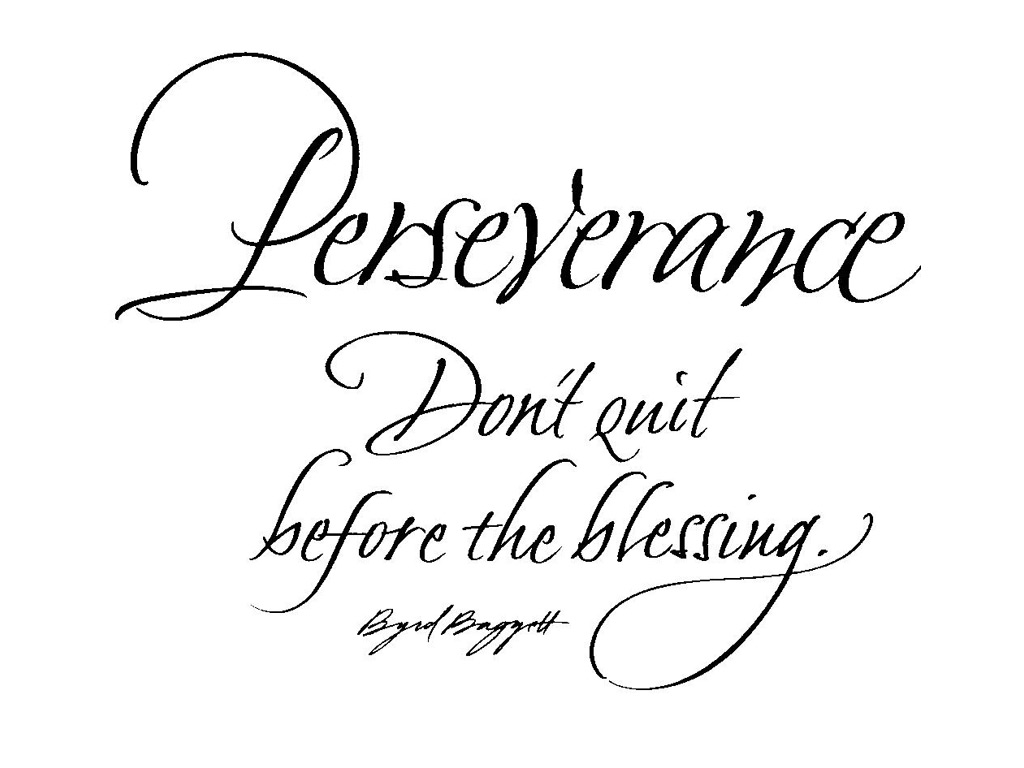 Perseverance
Don't quit
before the blessing.
Byrd Baggett